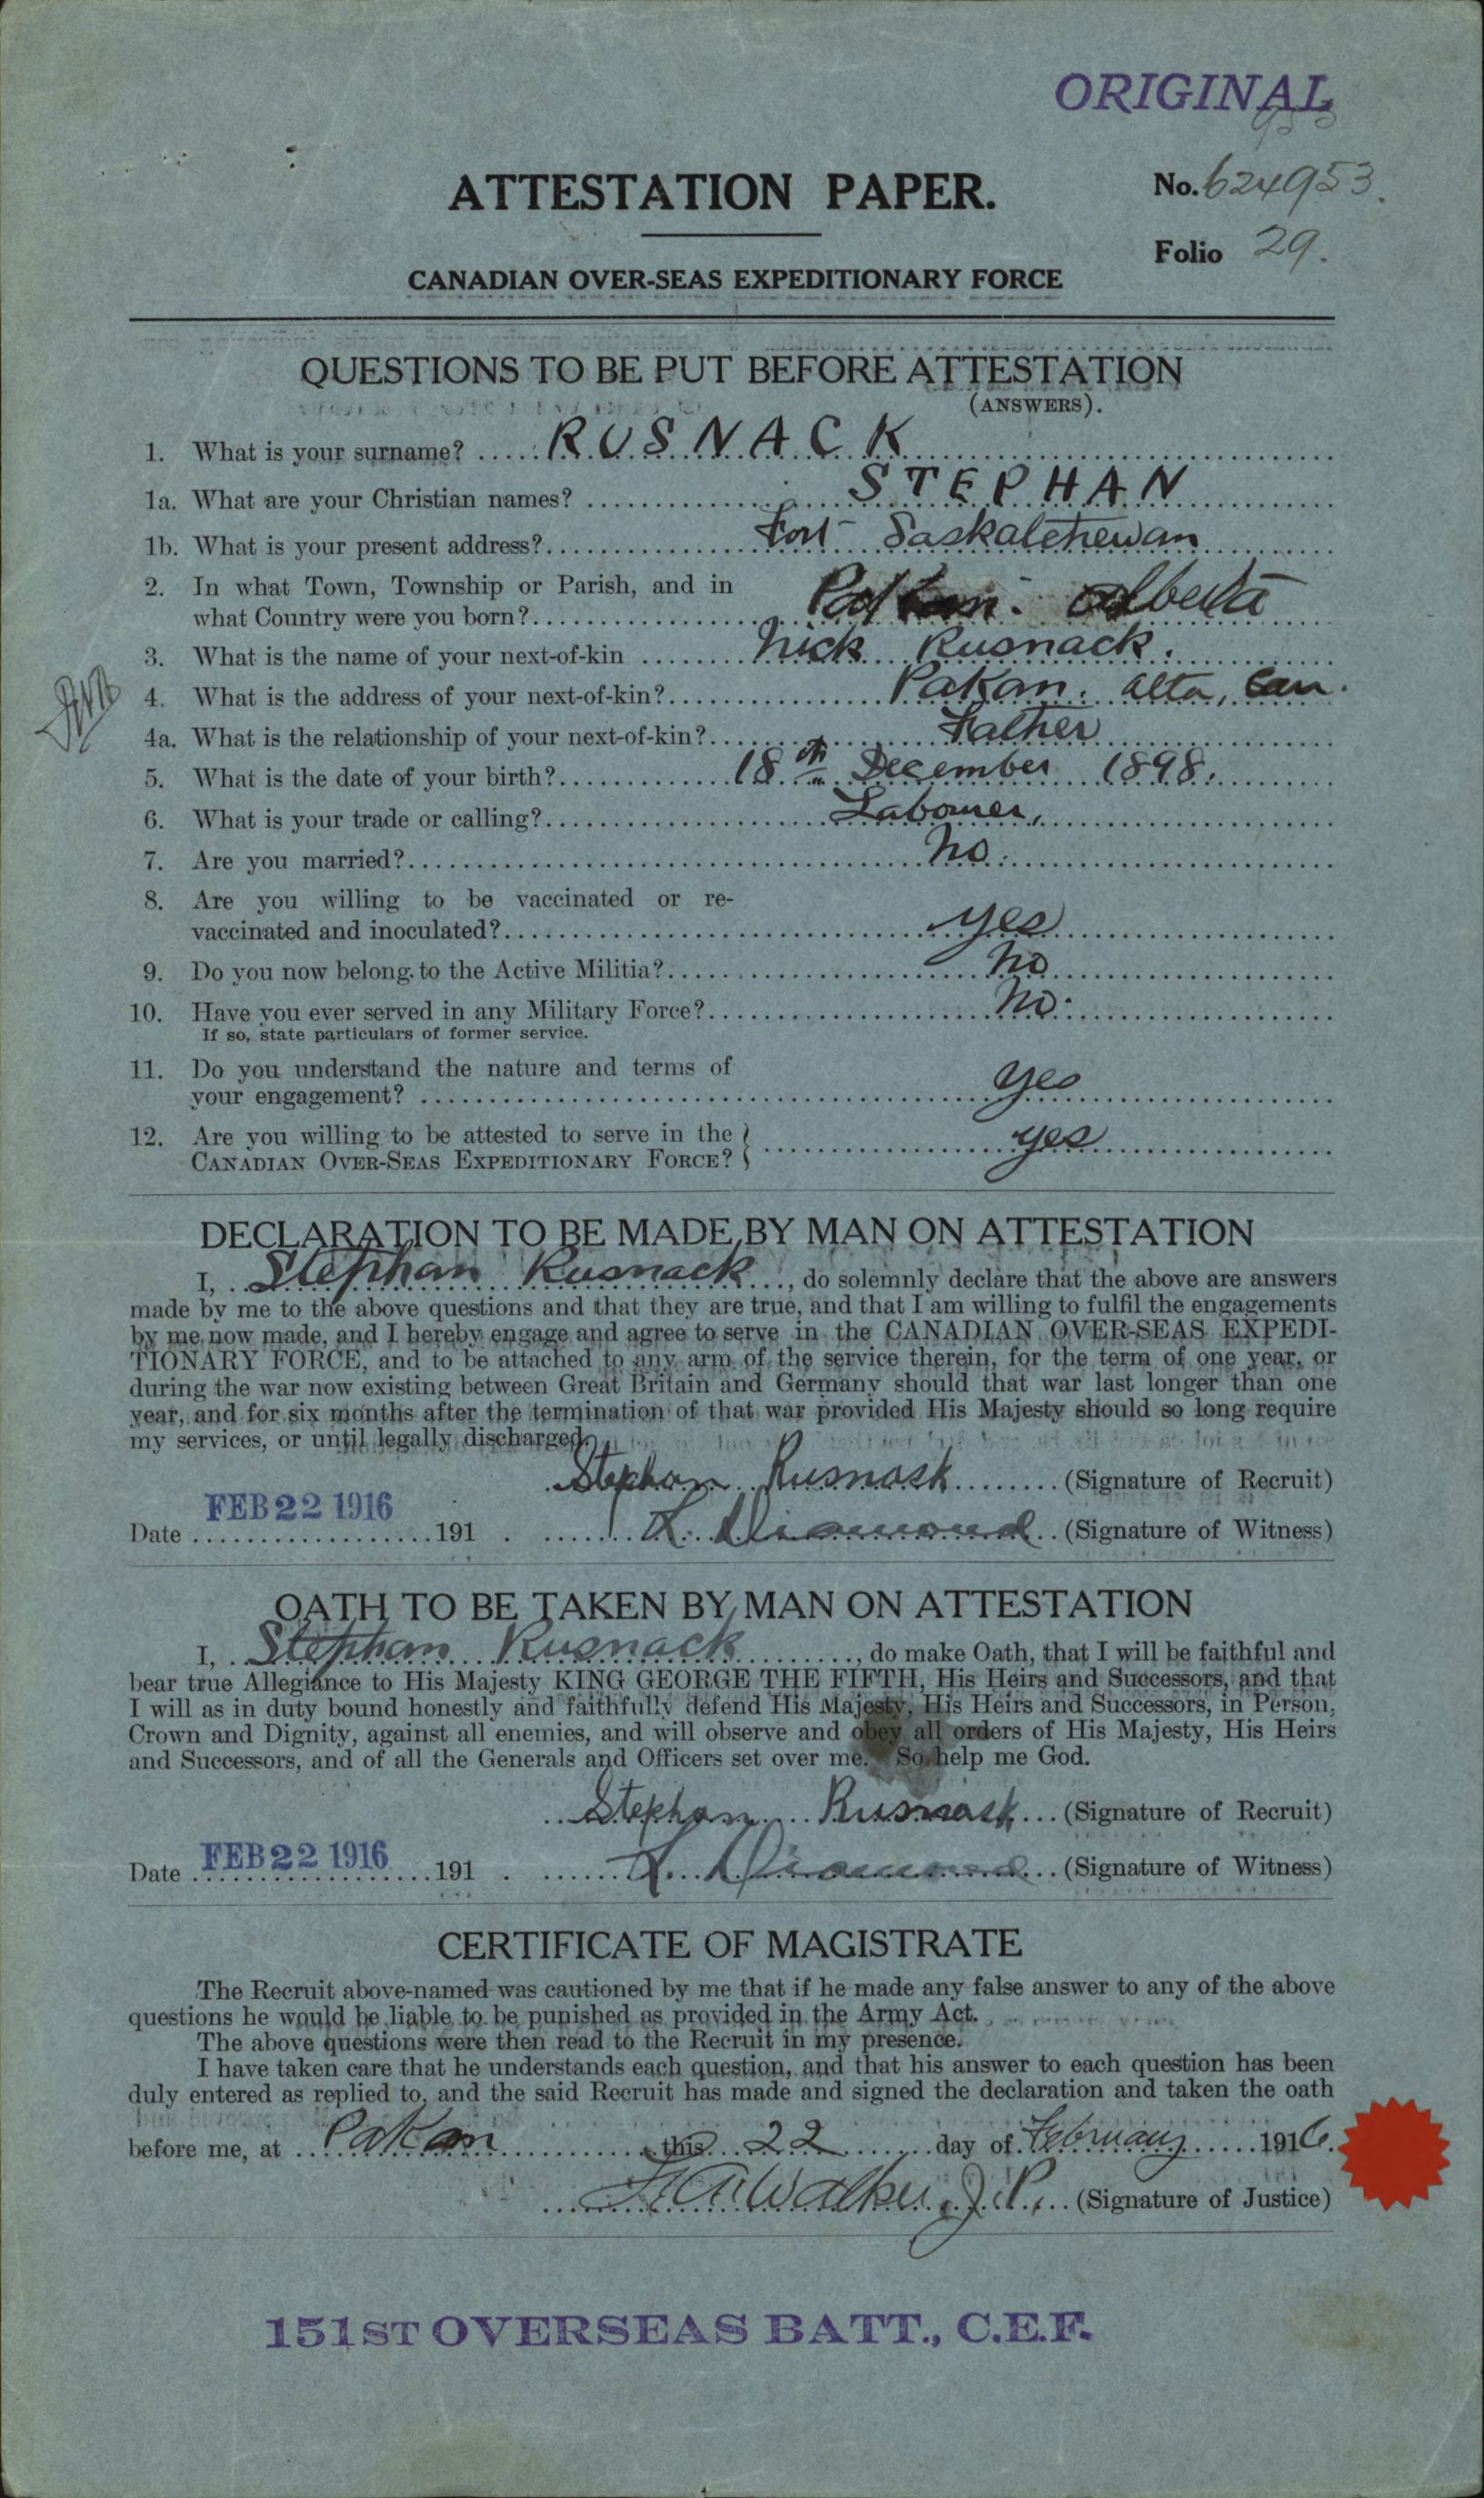 ORIGINAL
ATTESTATION PAPER.
No. 624953.
Folio 29.
CANADIAN OVER-SEAS EXPEDITIONARY FORCE
QUESTIONS TO BE PUT BEFORE ATTESTATION
(ANSWERS).
1. What is your surname? RUSNACK
1a. What are your Christian names? STEPHAN
1b. What is your present address? Fort Saskatchewan
2. In what Town, Township or Parish, and in
what Country were you born? Pakan. Alberta
3. What is the name of your next-of-kin Nick Rusnack.
4. What is the address of your next-of-kin? Pakan. Alta, Can.
4a. What is the relationship of your next-of-kin? Father
5. What is the date of your birth? 18th December 1898.
6. What is your trade or calling? Labourer,
7. Are you married? No.
8. Are you willing to be vaccinated or re-
vaccinated and inoculated? yes
9. Do you now belong to the Active Militia? No
10. Have you ever served in any Military Force? No.
If so, state particulars of former service.
11. Do you understand the nature and terms of
your engagement? yes
12. Are you willing to be attested to serve in the
CANADIAN OVER-SEAS EXPEDITIONARY FORCE? yes
DECLARATION TO BE MADE BY MAN ON ATTESTATION
I, Stephan Rusnack, do solemnly declare that the above are answers
made by me to the above questions and that they are true, and that I am willing to fulfil the engagements
by me now made, and I hereby engage and agree to serve in the CANADIAN OVER-SEAS EXPEDI-
TIONARY FORCE, and to be attached to any arm of the service therein, for the term of one year, or
during the war now existing between Great Britain and Germany should that war last longer than one
year, and for six months after the termination of that war provided His Majesty should so long require
my services, or until legally discharged.
Stephan Rusnask (Signature of Recruit)
Date FEB 22 1916 191 . L. Diamond (Signature of Witness)
OATH TO BE TAKEN BY MAN ON ATTESTATION
I, Stephan Rusnack, do make Oath, that I will be faithful and
bear true Allegiance to His Majesty KING GEORGE THE FIFTH, His Heirs and Successors, and that
I will as in duty bound honestly and faithfully defend His Majesty, His Heirs and Successors, in Person,
Crown and Dignity, against all enemies, and will observe and obey all orders of His Majesty, His Heirs
and Successors, and of all the Generals and Officers set over me. So help me God.
Stephan Rusnask (Signature of Recruit)
Date FEB 22 1916 191 . L. Diamond (Signature of Witness)
CERTIFICATE OF MAGISTRATE
The Recruit above-named was cautioned by me that if he made any false answer to any of the above
questions he would be liable to be punished as provided in the Army Act.
The above questions were then read to the Recruit in my presence.
I have taken care that he understands each question, and that his answer to each question has been
duly entered as replied to, and the said Recruit has made and signed the declaration and taken the oath
before me, at Pakan this 22 day of February 1916.
Walker J.P. (Signature of Justice)
151ST OVERSEAS BATT., C.E.F.